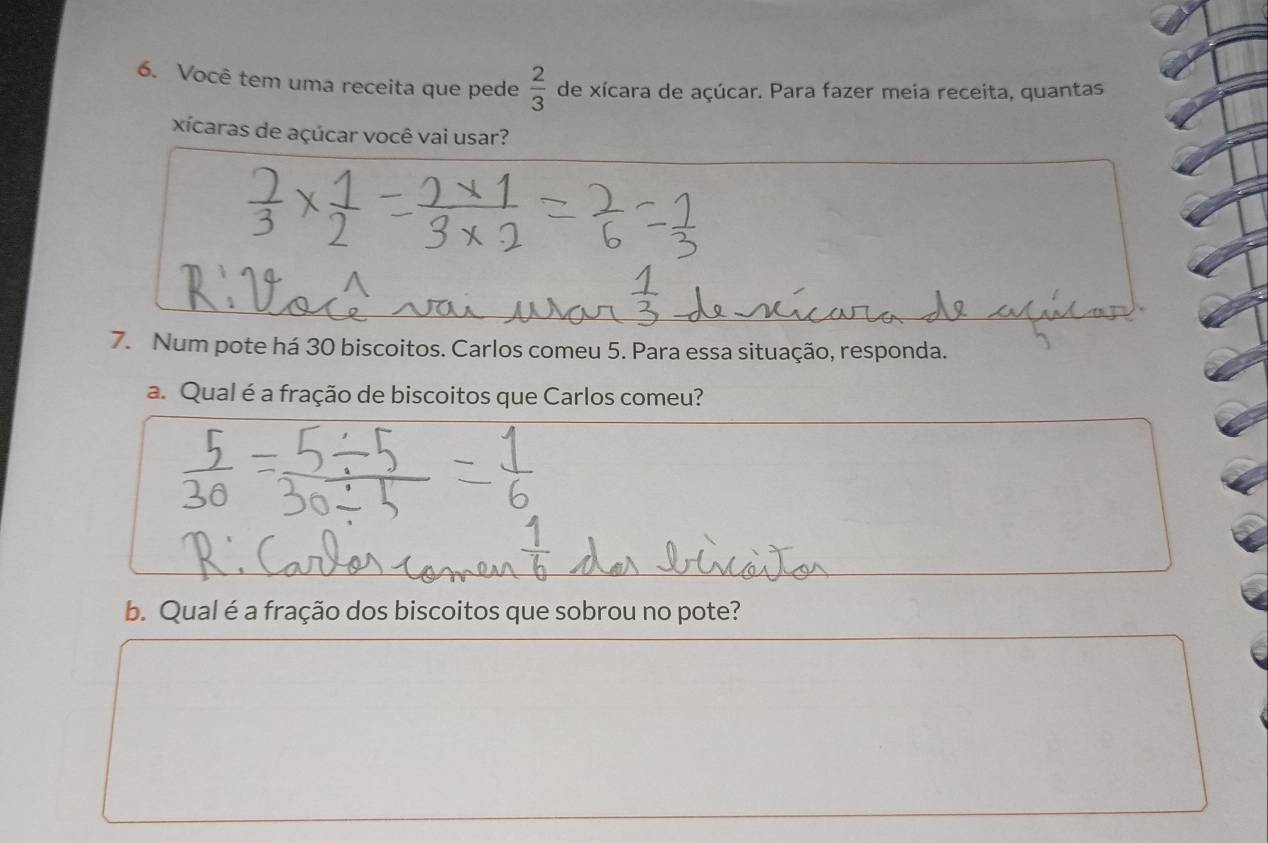 6. Você tem uma receita que pede 2/3 de xícara de açúcar. Para fazer meia receita, quantas
xícaras de açúcar você vai usar?
2/3 × 1/2 = 2 × 1/3 × 2 = 2/6 = 1/3
R: Você vai usar 1/3 de xícara de açúcar.
7. Num pote há 30 biscoitos. Carlos comeu 5. Para essa situação, responda.
a. Qual é a fração de biscoitos que Carlos comeu?
5/30 = 5 ÷ 5/30 ÷ 5 = 1/6
R: Carlos comeu 1/6 dos biscoitos
b. Qual é a fração dos biscoitos que sobrou no pote?